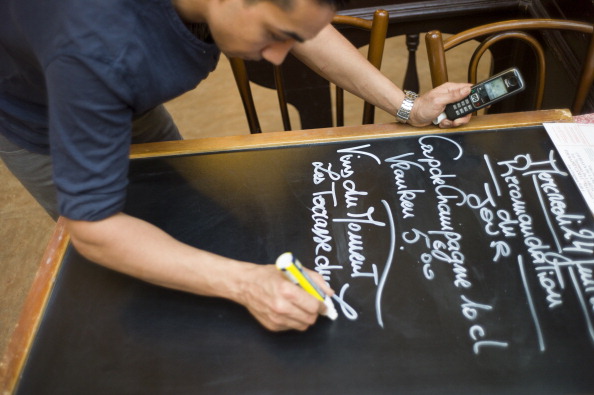 Mercredi 24 Juin
Recommandation
du
Jour
Coupe Champagne 10 cl
Vranken 5.00
Vins du Moment
Les Terrasse du L